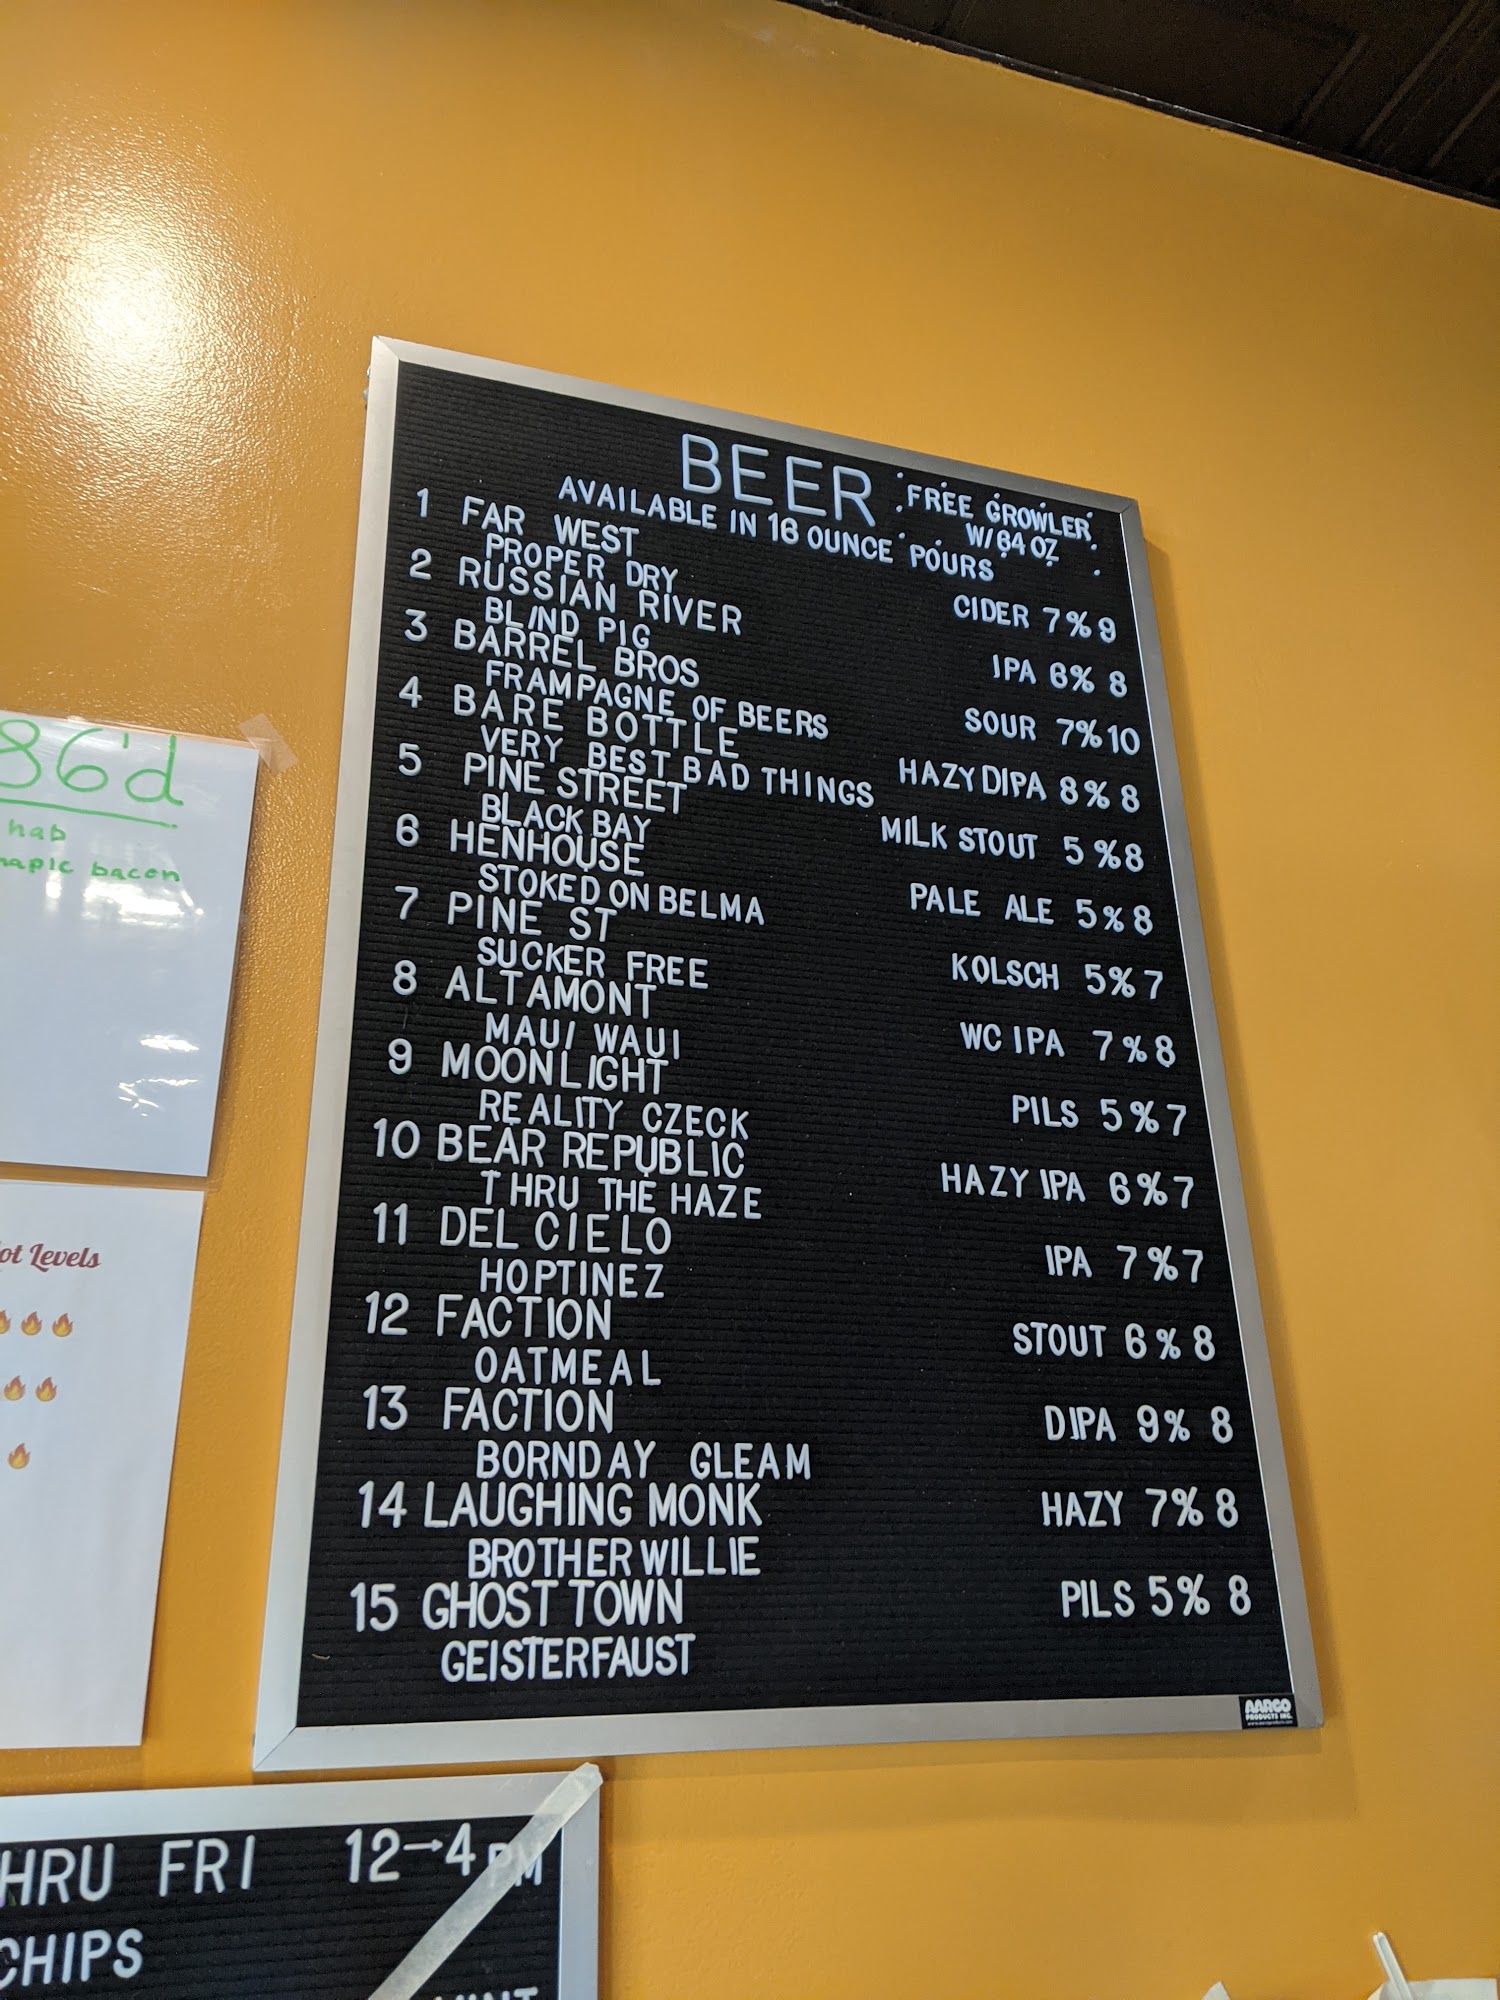 BEER
FREE GROWLER
W/64 OZ
AVAILABLE IN 16 OUNCE POURS
1 FAR WEST
PROPER DRY
CIDER 7% 9
2 RUSSIAN RIVER
BLIND PIG
IPA 6% 8
3 BARREL BROS
FRAMPAGNE OF BEERS
SOUR 7% 10
4 BARE BOTTLE
VERY BEST BAD THINGS
HAZY DIPA 8% 8
5 PINE STREET
BLACK BAY
MILK STOUT 5% 8
6 HENHOUSE
STOKED ON BELMA
PALE ALE 5% 8
7 PINE ST
SUCKER FREE
KOLSCH 5% 7
8 ALTAMONT
MAUI WAUI
WC IPA 7% 8
9 MOONLIGHT
REALITY CZECK
PILS 5% 7
10 BEAR REPUBLIC
THRU THE HAZE
HAZY IPA 6% 7
11 DEL CIELO
HOPTINEZ
IPA 7% 7
12 FACTION
OATMEAL
STOUT 6% 8
13 FACTION
BORNDAY GLEAM
DIPA 9% 8
14 LAUGHING MONK
BROTHER WILLIE
HAZY 7% 8
15 GHOST TOWN
GEISTERFAUST
PILS 5% 8
AARCO
PRODUCTS INC.
86'd
hab
bacon
Levels
HRU FRI 12→4 PM
CHIPS